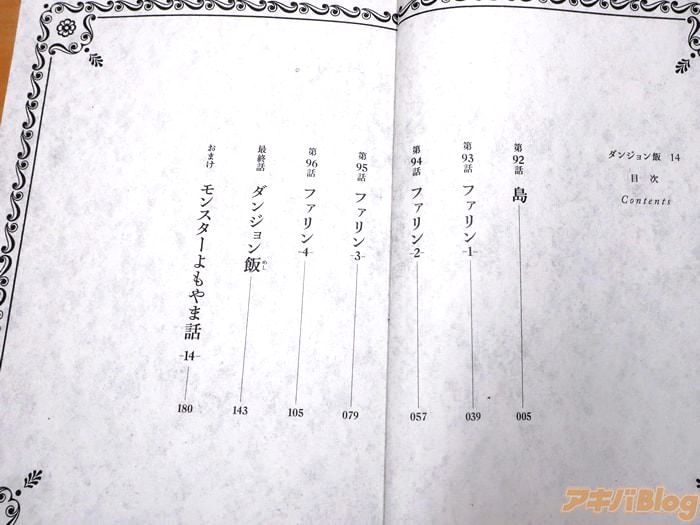 ダンジョン飯 14
目次
Contents
第92話 島 005
第93話 ファリン-1- 039
第94話 ファリン-2- 057
第95話 ファリン-3- 079
第96話 ファリン-4- 105
最終話 ダンジョン飯めし 143
おまけ モンスターよもやま話-14- 180
アキバBlog